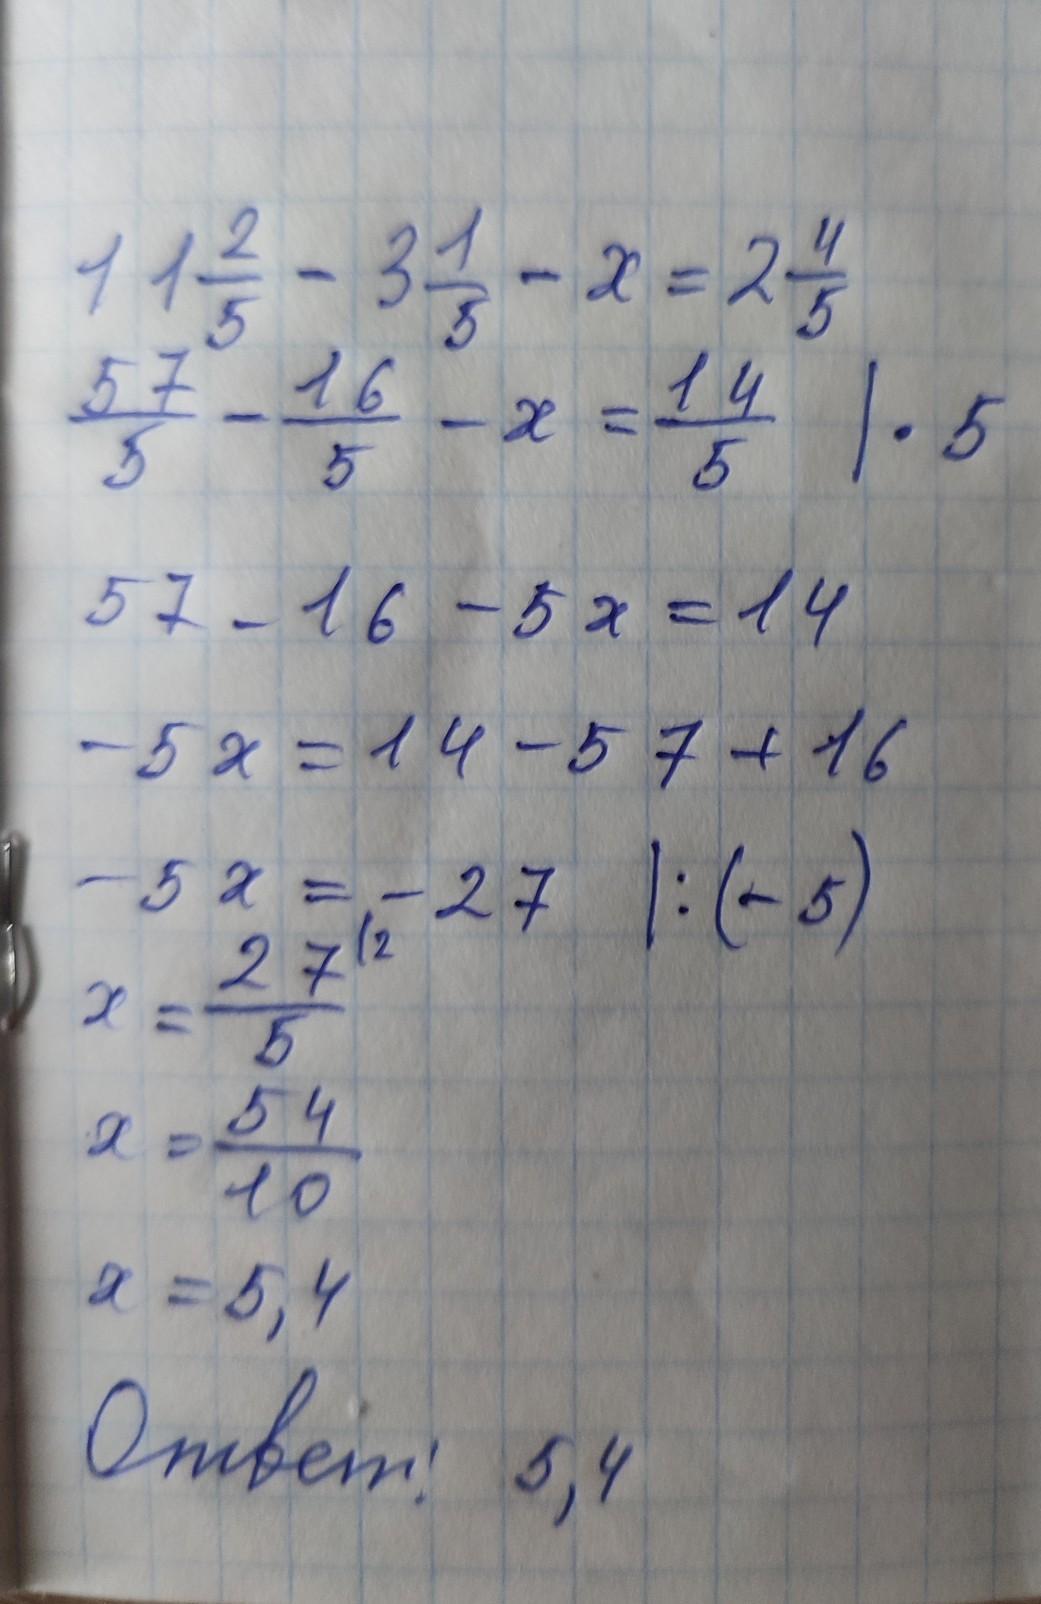 11 2/5 - 3 1/5 - x = 2 4/5
57/5 - 16/5 - x = 14/5 | · 5
57 - 16 - 5x = 14
-5x = 14 - 57 + 16
-5x = -27 | : (-5)
x = 27/5 (2
x = 54/10
x = 5,4
Ответ: 5,4